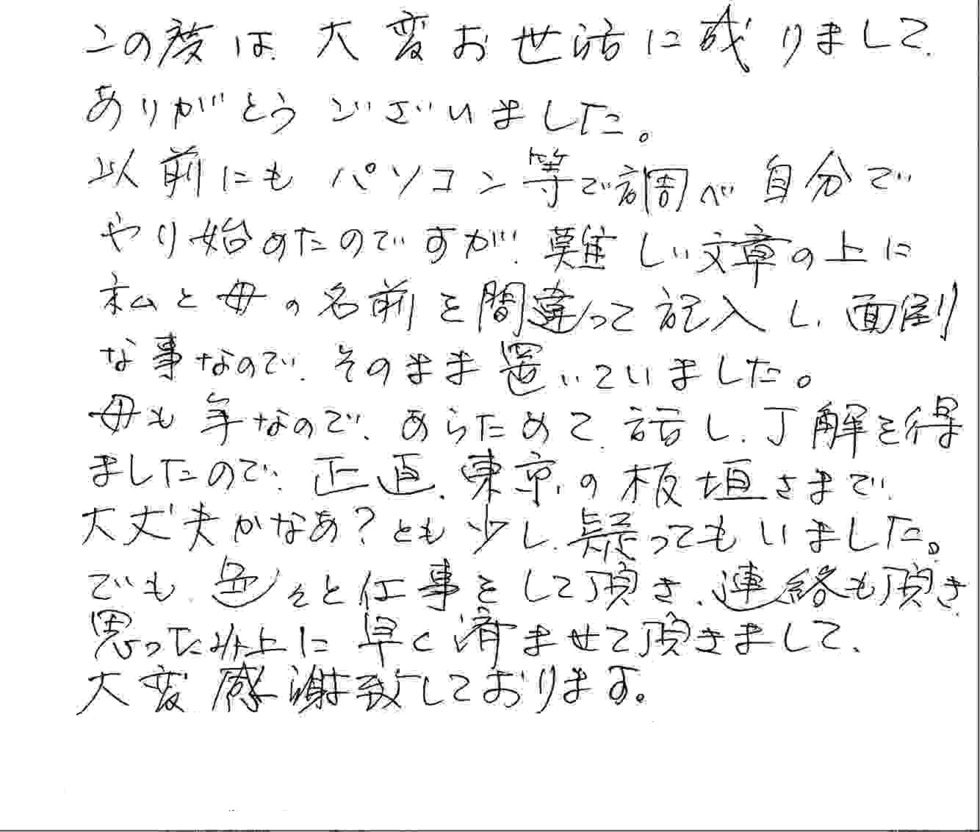 この度は、大変お世話に成りまして、
ありがとうございました。
以前にもパソコン等で調べ自分で
やり始めたのですが、難しい文章の上に
私と母の名前を間違って記入し、面倒
な事なので、そのまま置いていました。
母も年なので、あらためて、話し、了解を得
ましたので、正直、東京の板垣さまで、
大丈夫かなあ?とも少し、疑ってもいました。
でも、色々と仕事をして頂き、連絡も頂き
思った以上に早く済ませて頂きまして、
大変感謝致しております。